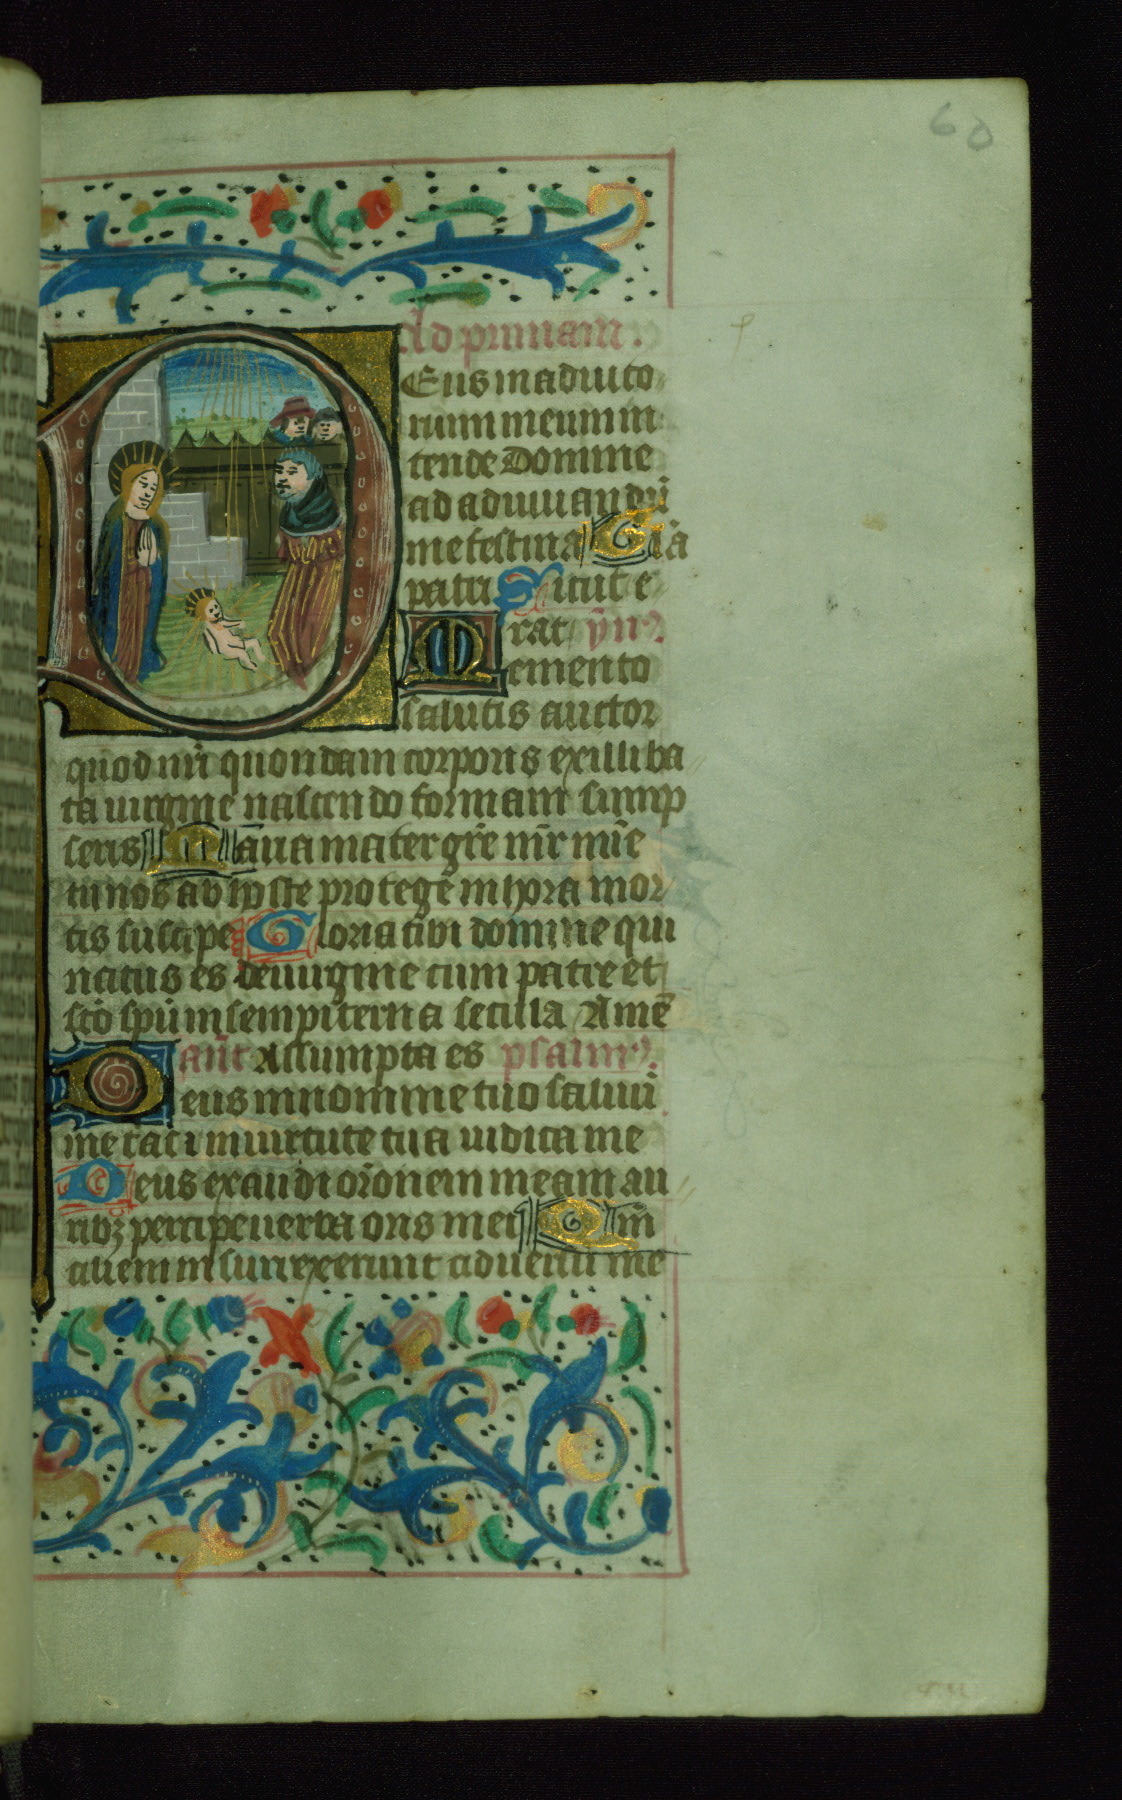 60
Ad primam.
Eus in adiuto
rium meum in
tende Domine
ad adiuuandū
me festina Glīa
patri Sicut e
rat ẏm̄ꝰ.
Memento
salutis auctor
quod nr̄i quondam corporis ex illiba
ta uirgine nascendo formam sump
seris Maria mater gr̄e mr̄ mīe
tu nos ab hoste protege in hora mor
tis suscipe Gloria tibi domine qui
natus es de uirgine cum patre et
sc̄o spū in sempiterna secula Amē
an̄t Assumpta es psalmꝰ.
Deus in nomine tuo saluū
me fac i in uirtute tua iudica me
Deus exaudi orōnem meam au
ribꝫ percipe uerba oris mei Qm̄
alieni insurrexerunt aduersū me